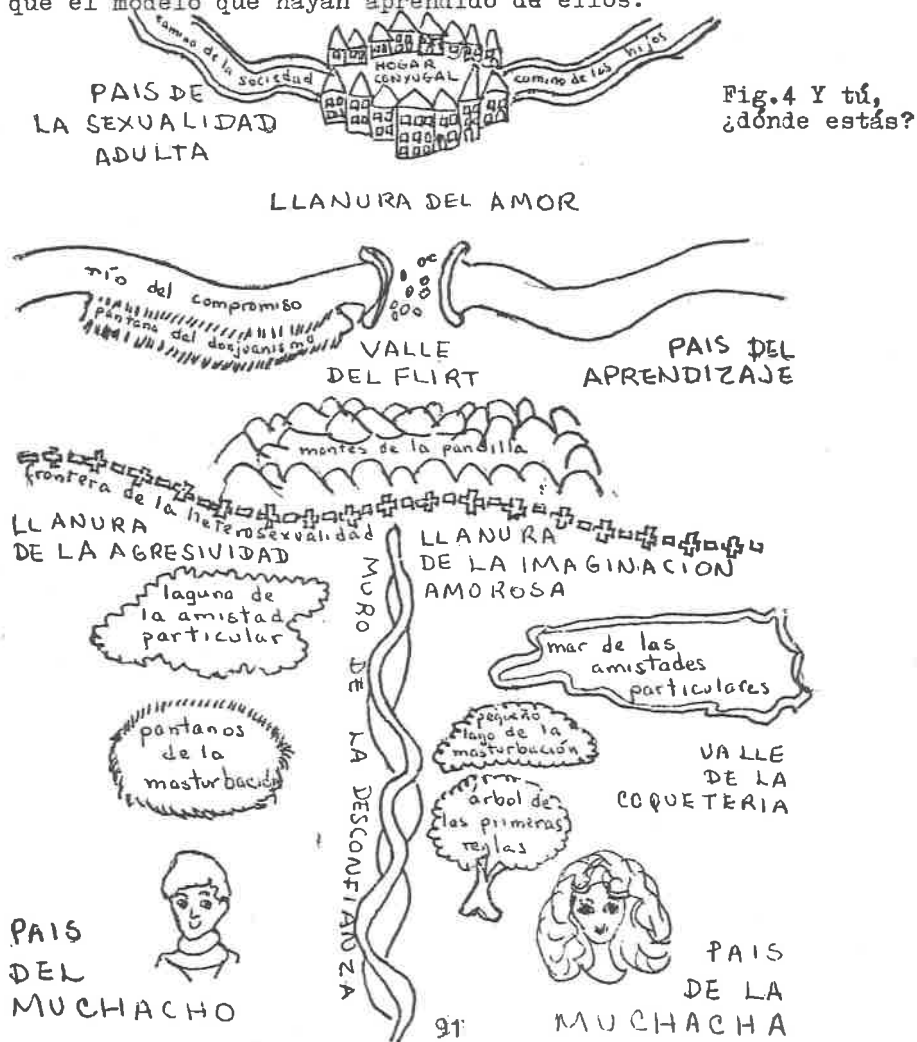 que el modelo que hayan aprendido de ellos.
camino de la sociedad
HOGAR
CONYUGAL
camino de los hijos
PAIS DE
LA SEXUALIDAD
ADULTA
Fig.4 Y tú,
¿dónde estás?
LLANURA DEL AMOR
río del compromiso
pantano del donjuanismo
VALLE
DEL FLIRT
PAIS DEL
APRENDIZAJE
montes de la pandilla
frontera de la heterosexualidad
LLANURA
DE LA AGRESIVIDAD
LLANURA
DE LA IMAGINACION
AMOROSA
laguna de
la amistad
particular
MURO DE LA DESCONFIANZA
mar de las
amistades
particulares
pantanos
de la
masturbación
pequeño
lago de la
masturbación
VALLE
DE LA
COQUETERIA
árbol de
las primeras
reglas
PAIS
DEL
MUCHACHO
PAIS
DE LA
MUCHACHA
91